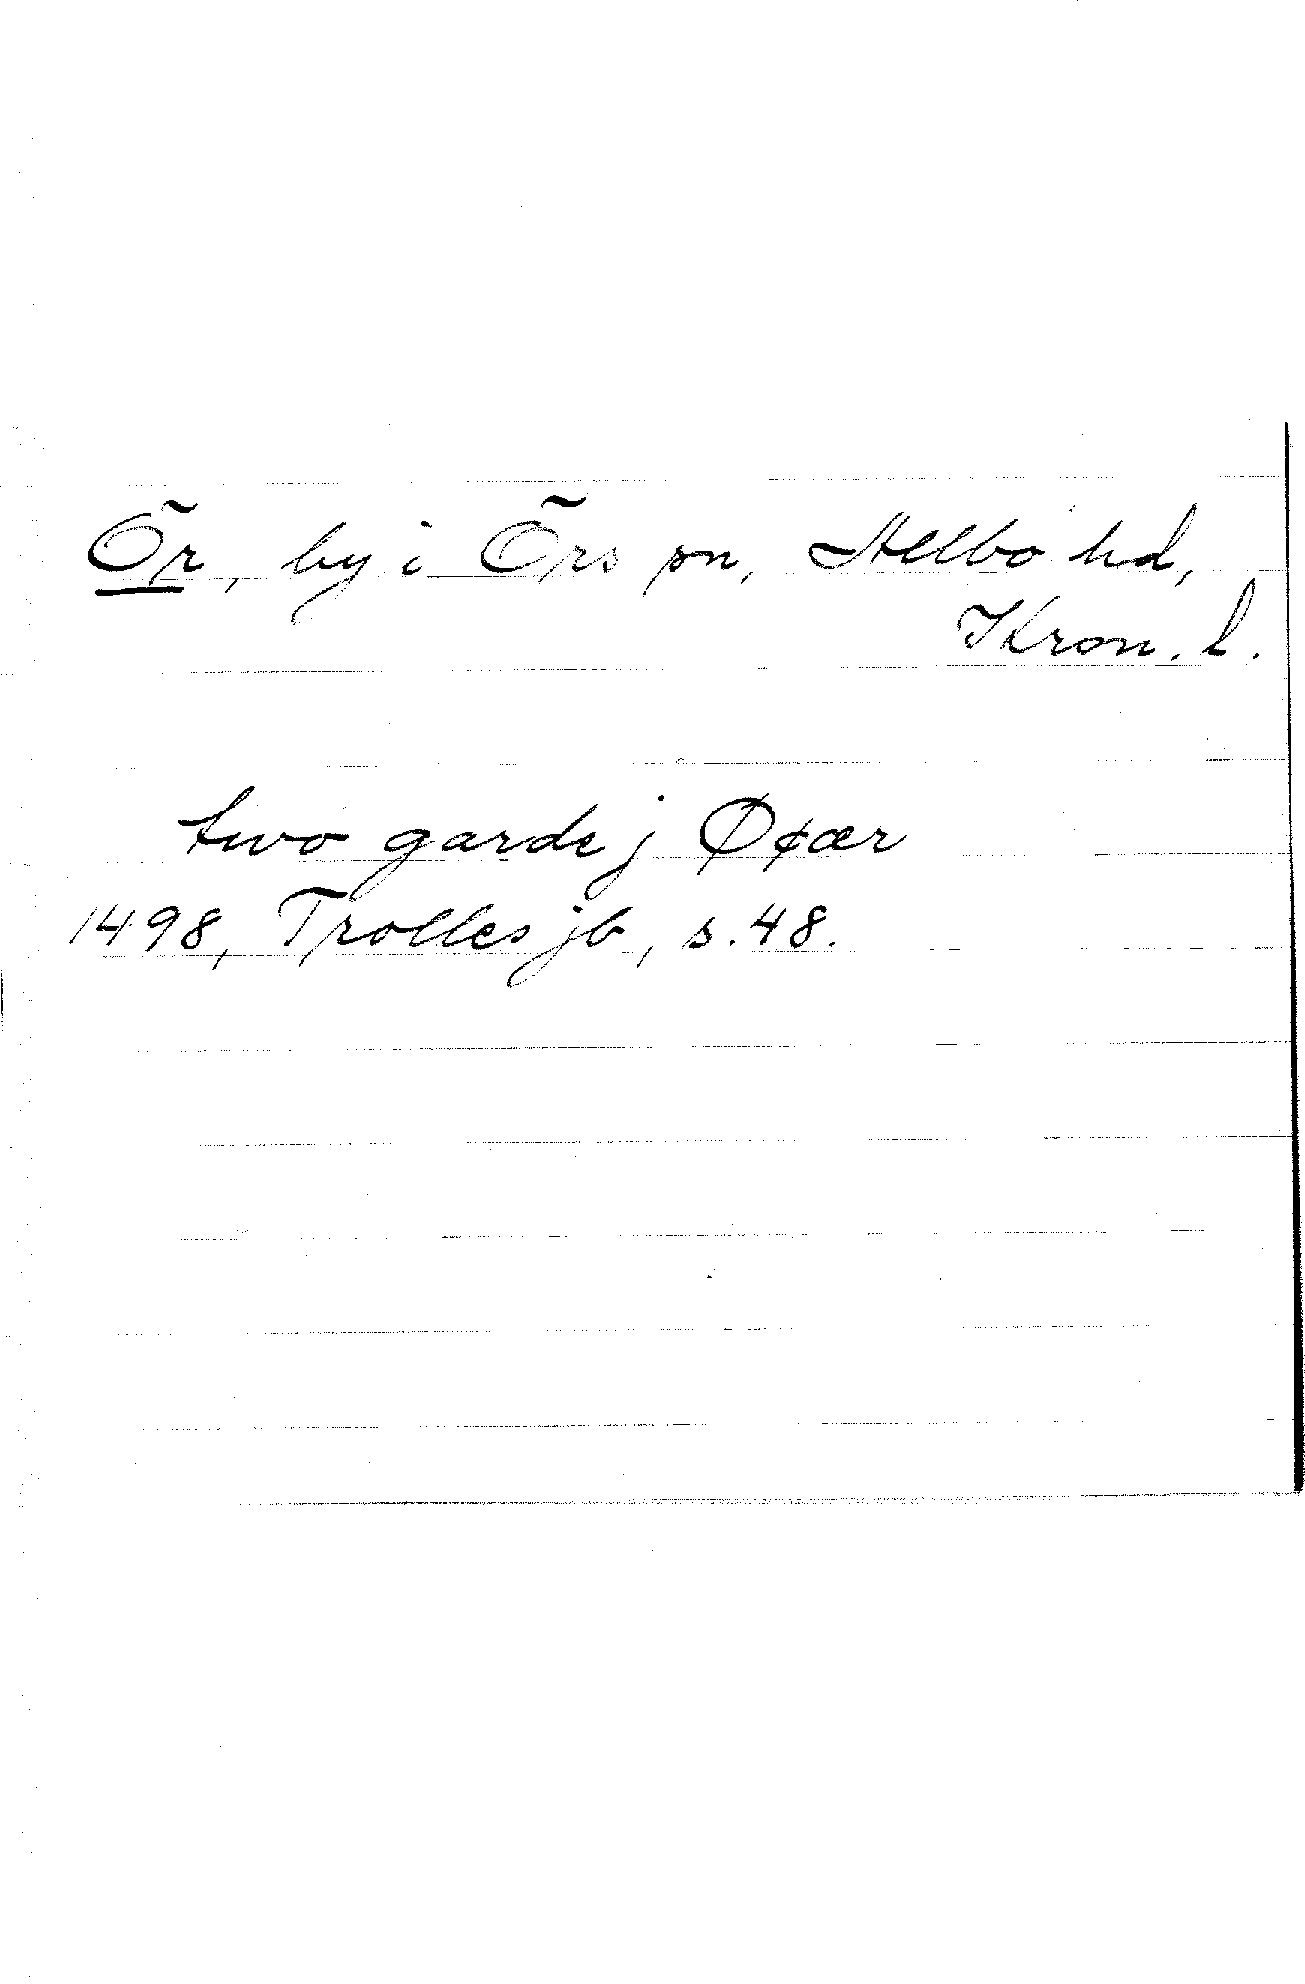 Ör, by i Örs sn, Allbo hd,
Kron. l.
two garde j Øøær
1498, Trolles jb, s. 48.